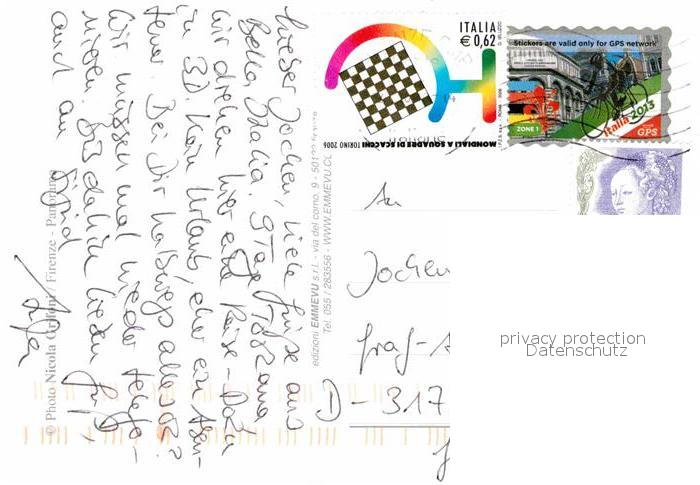 Lieber Jochen, liebe Grüße aus
Bella Italia. 9 Tage Toscana
wir drehen hier eine Reise-Doku
in 3D. Kein Urlaub, eher ein Aben-
teuer. Bei Dir halbwegs alles ok?
Wir müssen mal wieder telefo-
nieren. Bis dahin lieben Gruß,
auch an Sigrid
© Photo Nicola Grifoni / Firenze - Panorama
edizioni EMMEVU s.r.l. - via del corno, 9 - 50122
Tel. 055 / 283556 - WWW.EMMEVU.CL
ITALIA
€ 0,62
MONDIALI A SQUADRE DI SCACCHI TORINO 2006
Stickers are valid only for GPS network
Italia 2013
ZONE 1
GPS
An
Jochen
Graf-
D - 317
privacy protection
Datenschutz